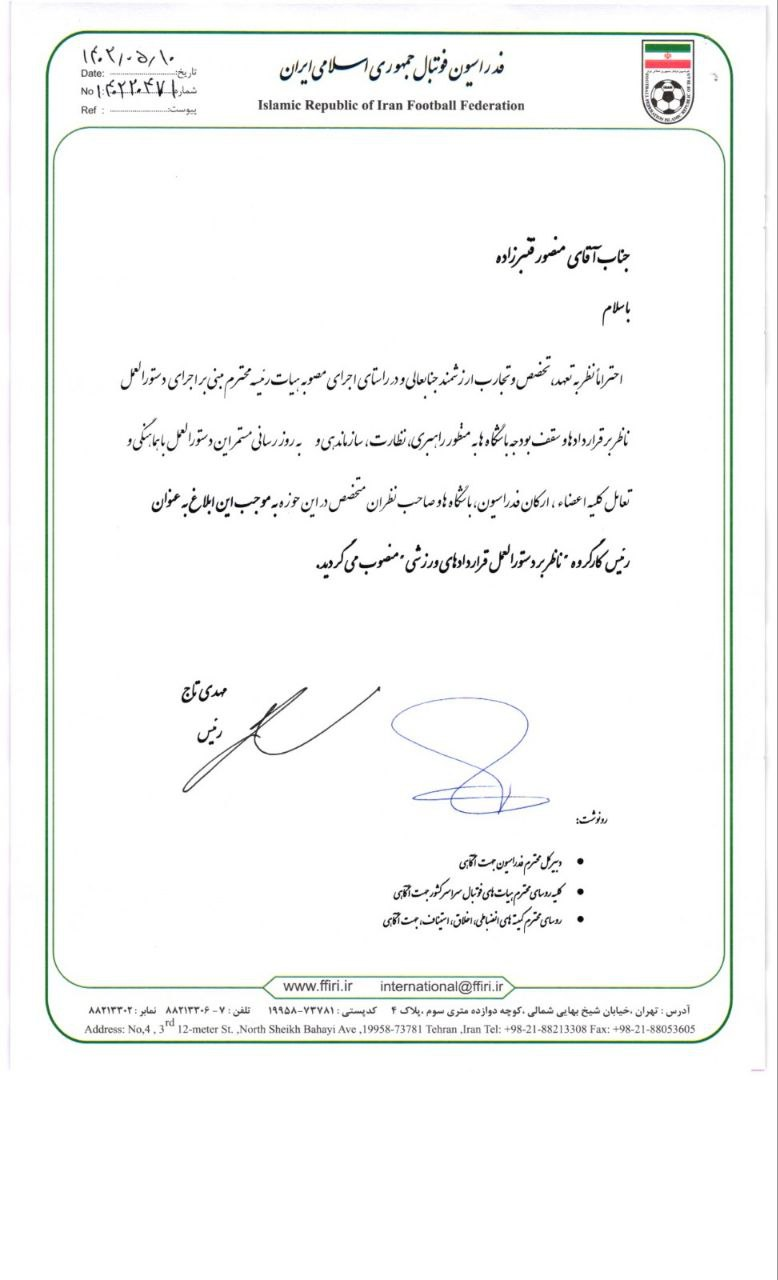 فدراسیون فوتبال جمهوری اسلامی ایران
Islamic Republic of Iran Football Federation
۱۴۰۲/۰۵/۱۰
Date: تاریخ:
No شماره
Ref : پیوست:
جناب آقای منصور قنبرزاده
باسلام
احتراماً نظر به تعهد، تخصص و تجارب ارزشمند جنابعالی و در راستای اجرای مصوبه هیات رئیسه محترم مبنی بر اجرای دستورالعمل
ناظر بر قراردادها و سقف بودجه باشگاه ها به منظور راهبری، نظارت، سازماندهی و به روز رسانی مستمر این دستورالعمل با هماهنگی و
تعامل کلیه اعضاء ، ارکان فدراسیون، باشگاه ها و صاحب نظران متخصص در این حوزه به موجب این ابلاغ به عنوان
رئیس کارگروه "ناظر بر دستورالعمل قراردادهای ورزشی" منصوب می گردید.
مهدی تاج
رئیس
رونوشت:
● دبیرکل محترم فدراسیون جهت آگاهی
● کلیه روسای محترم هیات های فوتبال سراسر کشور جهت آگاهی
● روسای محترم کمیته های انضباطی، اخلاق، استیناف، جهت آگاهی
www.ffiri.ir international@ffiri.ir
آدرس : تهران ،خیابان شیخ بهایی شمالی ،کوچه دوازده متری سوم ،پلاک ۴ کدپستی : ۷۳۷۸۱-۱۹۹۵۸ تلفن : ۷ - ۸۸۲۱۳۳۰۶ نمابر : ۸۸۲۱۳۳۰۲
Address: No,4 , 3rd 12-meter St. ,North Sheikh Bahayi Ave ,19958-73781 Tehran ,Iran Tel: +98-21-88213308 Fax: +98-21-88053605